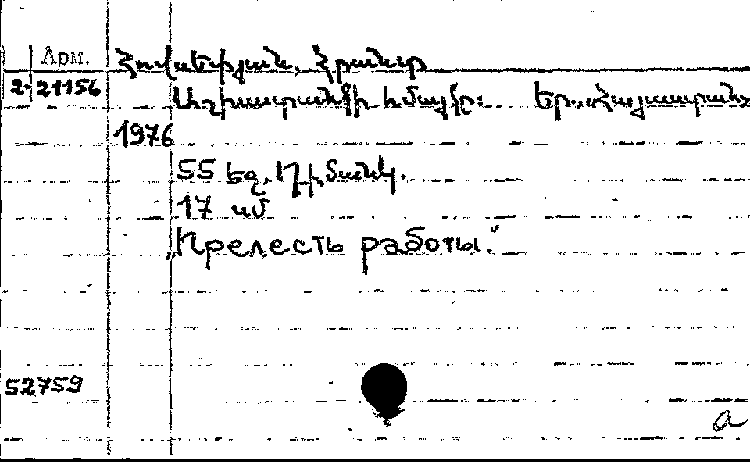 Арм. Հովսեփյան, Հրանտ
2-21156
Աշխատանքի հմայքը: Եր., Հայաստան,
1976
55 եջ. Դիմանկ.
17 սմ
„Прелесть работы."
52759
a